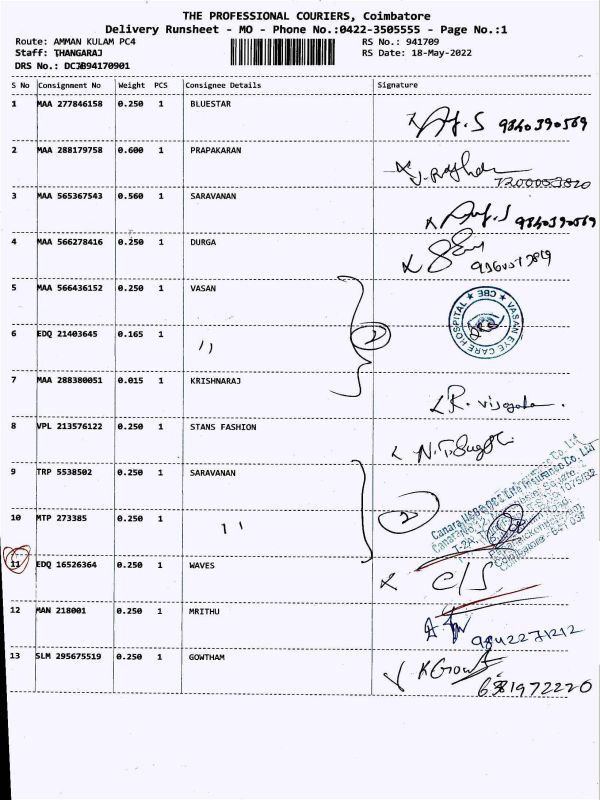 THE PROFESSIONAL COURIERS, Coimbatore
Delivery Runsheet - MO - Phone No.:0422-3505555 - Page No.:1
Route: AMMAN KULAM PC4 RS No.: 941709
Staff: THANGARAJ RS Date: 18-May-2022
DRS No.: DCJB94170901
S No Consignment No Weight PCS Consignee Details Signature
1 MAA 277846158 0.250 1 BLUESTAR
9840390569
2 MAA 288179758 0.600 1 PRAPAKARAN
7200053820
3 MAA 565367543 0.560 1 SARAVANAN
9840390569
4 MAA 566278416 0.250 1 DURGA
5 MAA 566436152 0.250 1 VASAN
VASAN EYE CARE HOSPITAL ★ CBE ★
6 EDQ 21403645 0.165 1 " 2
7 MAA 288380051 0.015 1 KRISHNARAJ
R.
8 VPL 213576122 0.250 1 STANS FASHION
9 TRP 5538502 0.250 1 SARAVANAN
Life Insurance Co. Ltd
10 MTP 273385 0.250 1 " 2
11 EDQ 16526364 0.250 1 WAVES
C/S
12 MAN 218001 0.250 1 MRITHU
9842271212
13 SLM 295675519 0.250 1 GOWTHAM
6381972220